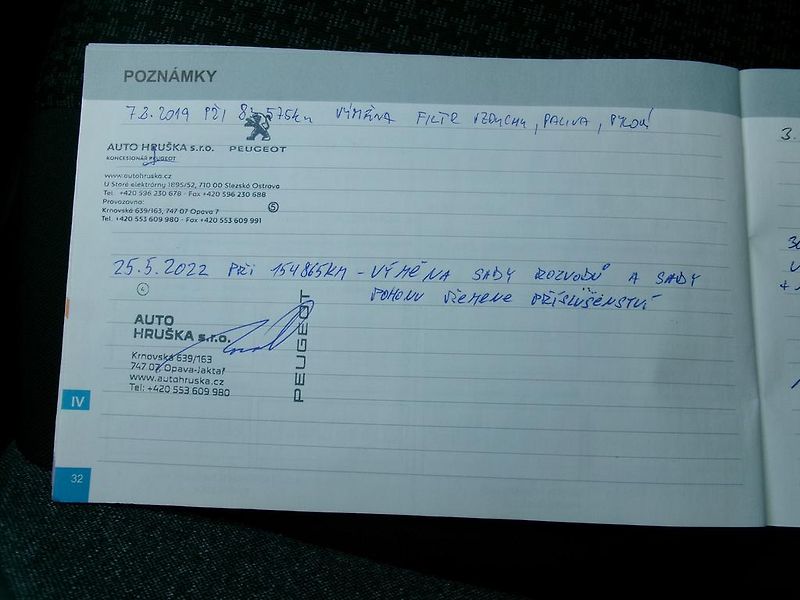 POZNÁMKY
7.2.2019 PŘI 575km VÝMĚNA FILTR VZDUCHU, PALIVA, PYLOVÝ
AUTO HRUŠKA s.r.o. PEUGEOT
KONCESIONÁŘ PEUGEOT
www.autohruska.cz
U Staré elektrárny 1895/52, 710 00 Slezská Ostrava
Tel. +420 596 230 678 - Fax +420 596 230 688
Provozovna:
Krnovská 639/163, 747 07 Opava 7
Tel. +420 553 609 980 - Fax +420 553 609 991
5
25.5.2022 PŘI 154865KM - VÝMĚNA SADY ROZVODŮ A SADY
POHONU ŘEMENE PŘÍSLUŠENSTVÍ
4
AUTO
HRUŠKA s.r.o.
Krnovská 639/163
747 07 Opava-Jaktař
www.autohruska.cz
Tel: +420 553 609 980
PEUGEOT
IV
32
3.